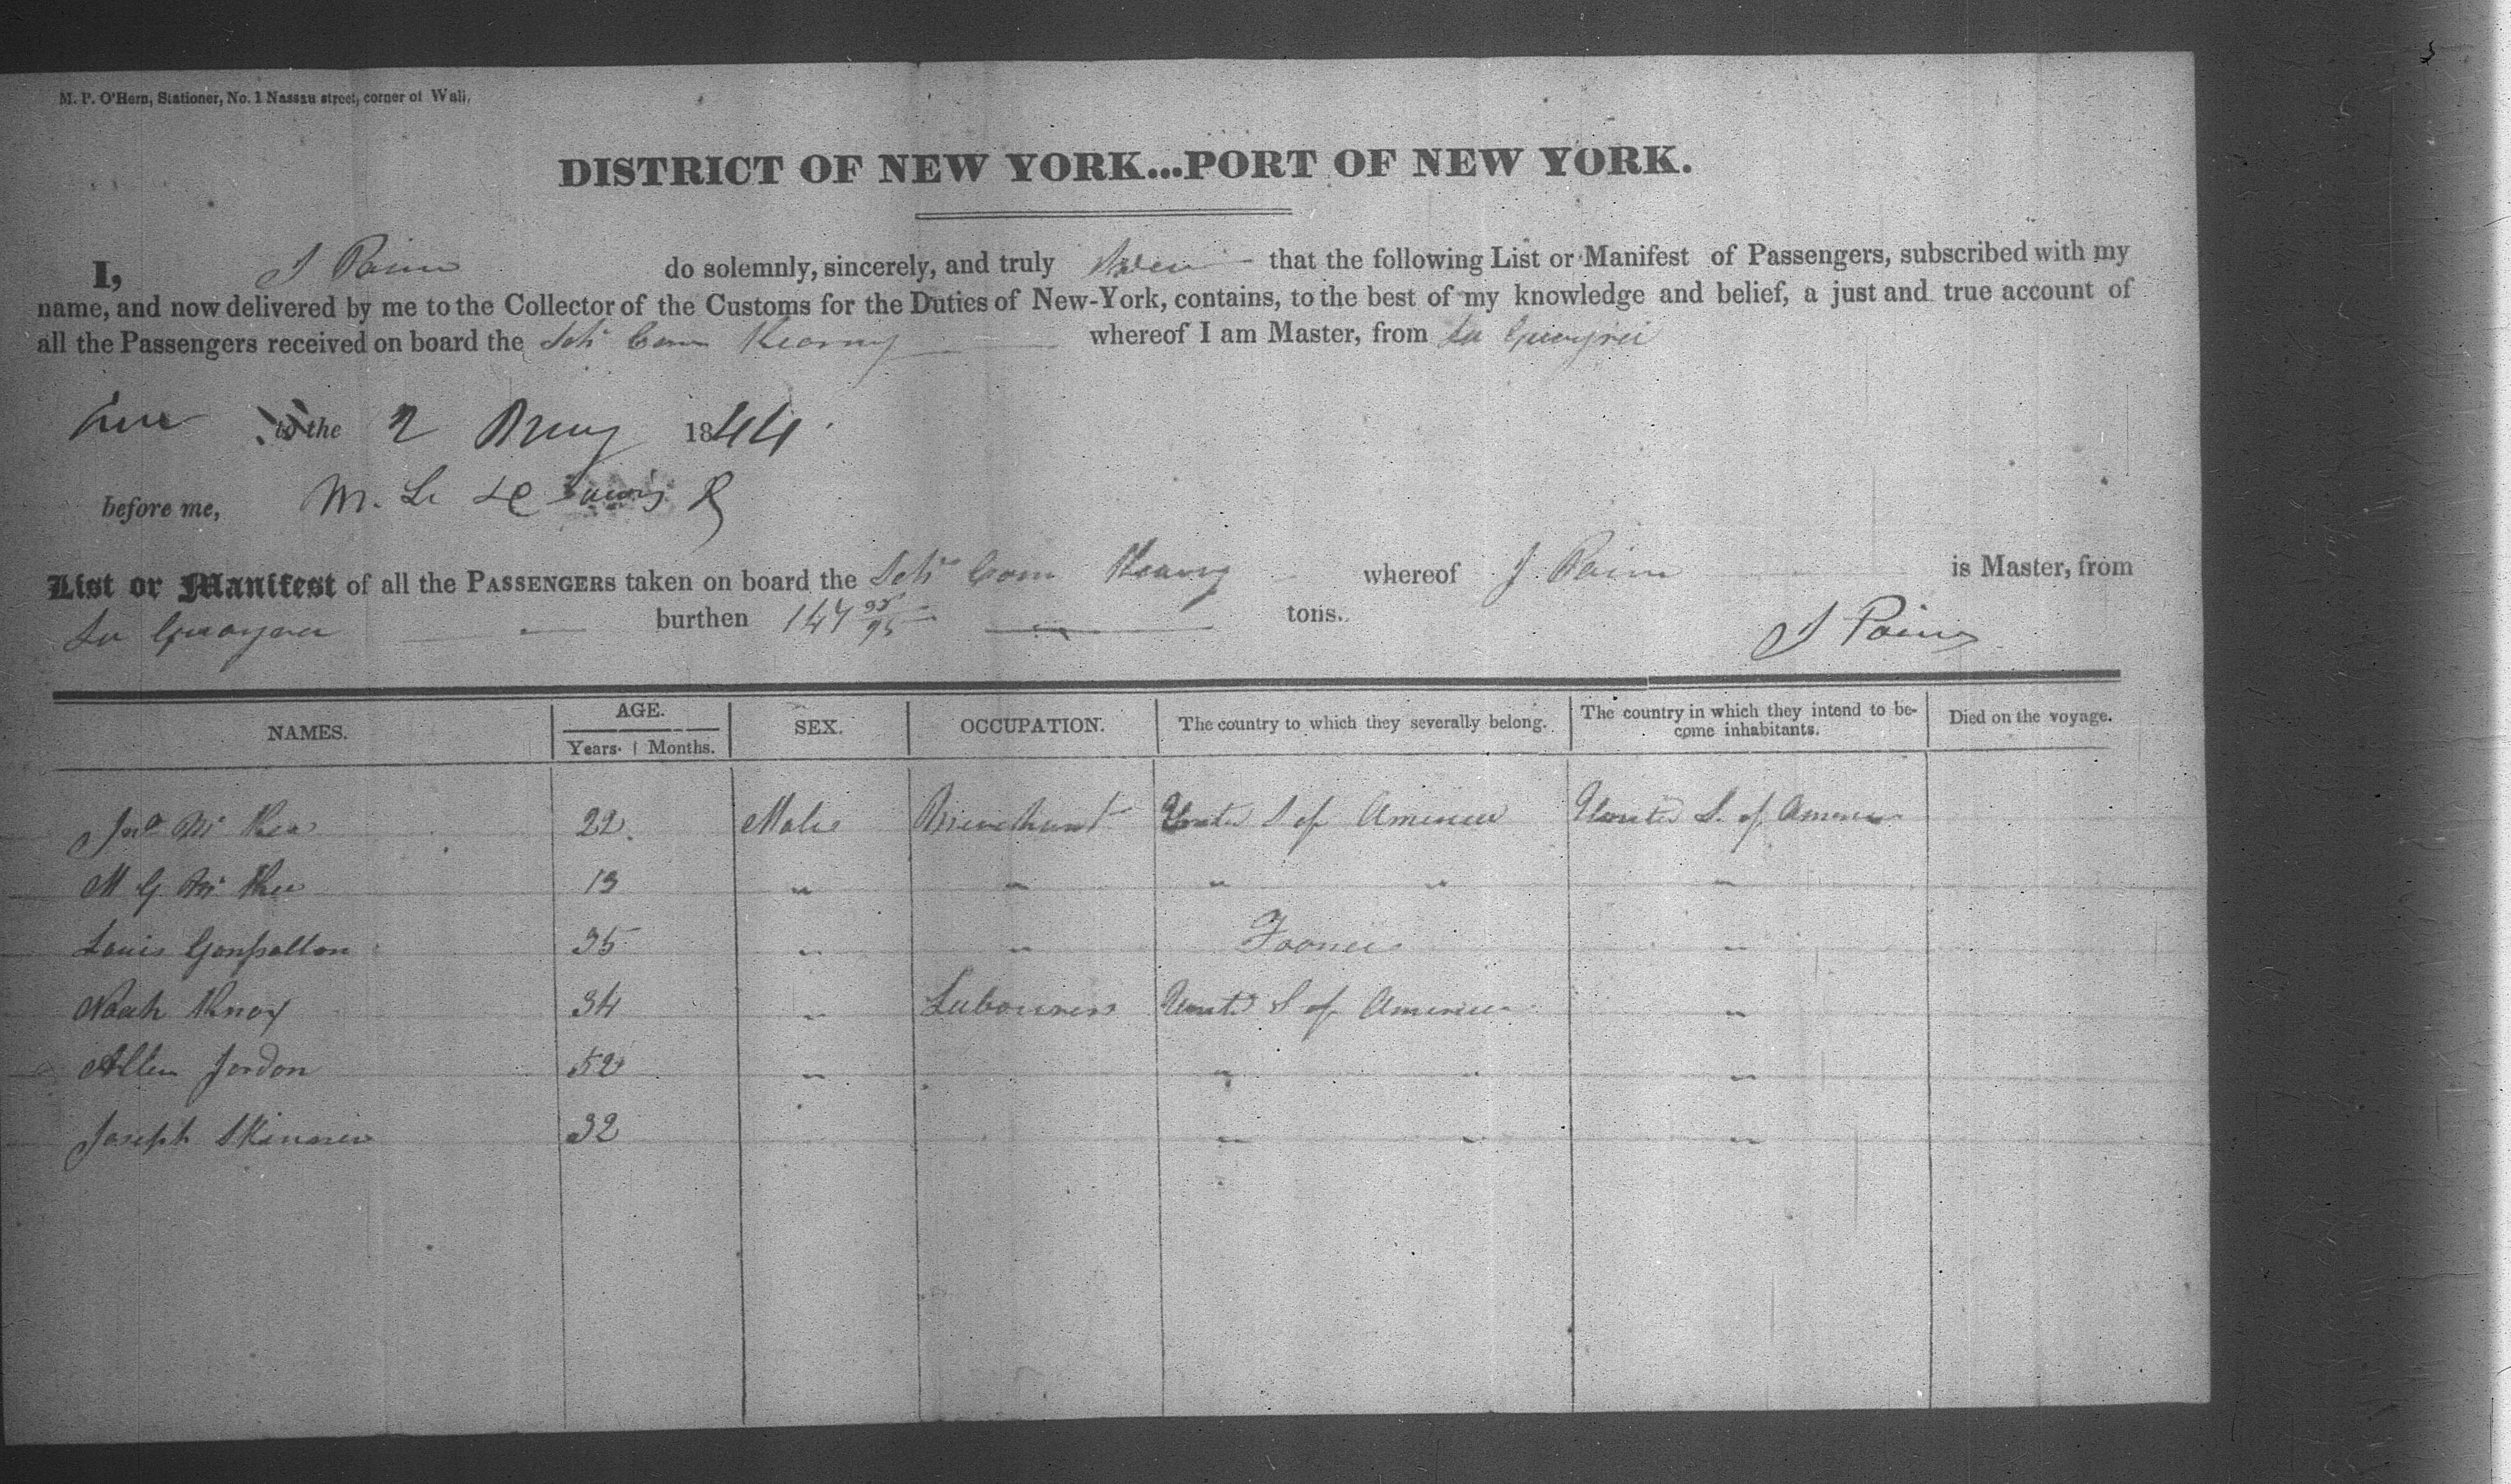 M. P. O'Hern, Stationer, No. 1 Nassau street, corner of Wall,
DISTRICT OF NEW YORK...PORT OF NEW YORK.
I, J Paine do solemnly, sincerely, and truly that the following List or Manifest of Passengers, subscribed with my
name, and now delivered by me to the Collector of the Customs for the Duties of New-York, contains, to the best of my knowledge and belief, a just and true account of
all the Passengers received on board the Schr Com Kearny whereof I am Master, from La Guayra
to the 2 May 1844
before me,
List or Manifest of all the PASSENGERS taken on board the Schr Com Kearny whereof J Paine is Master, from
La Guayra burthen 147 95/95 tons.
J Paine
NAMES. AGE. SEX. OCCUPATION. The country to which they severally belong. The country in which they intend to be-come inhabitants. Died on the voyage.
Years. Months.
Jno Mc Kee 22 Male Merchant United S of America United S. of America
M G Mc Kee 13 " " " " "
Louis 35 " " "
Noah Knox 34 " Labourers United S of America "
Allen Jordon 52 " " " "
Joseph Skinner 32 " " "